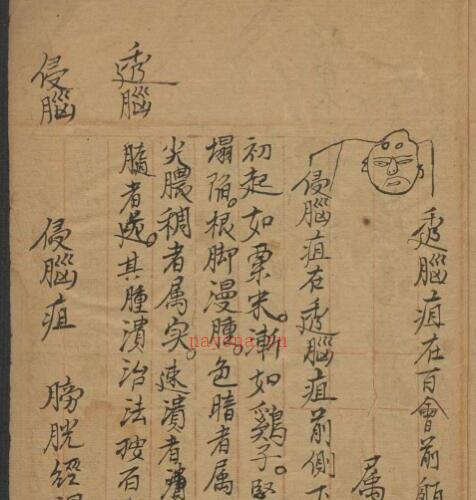 透腦疽在百會前
属
侵腦疽在透腦疽前側下
初起如粟米。漸如鷄子。堅
塌陷。根脚漫腫。色暗者属
尖膿稠者属实。速潰者
髓者逆。其腫潰治法按百
透腦
侵腦
侵腦疽 膀胱经
nayona.cn